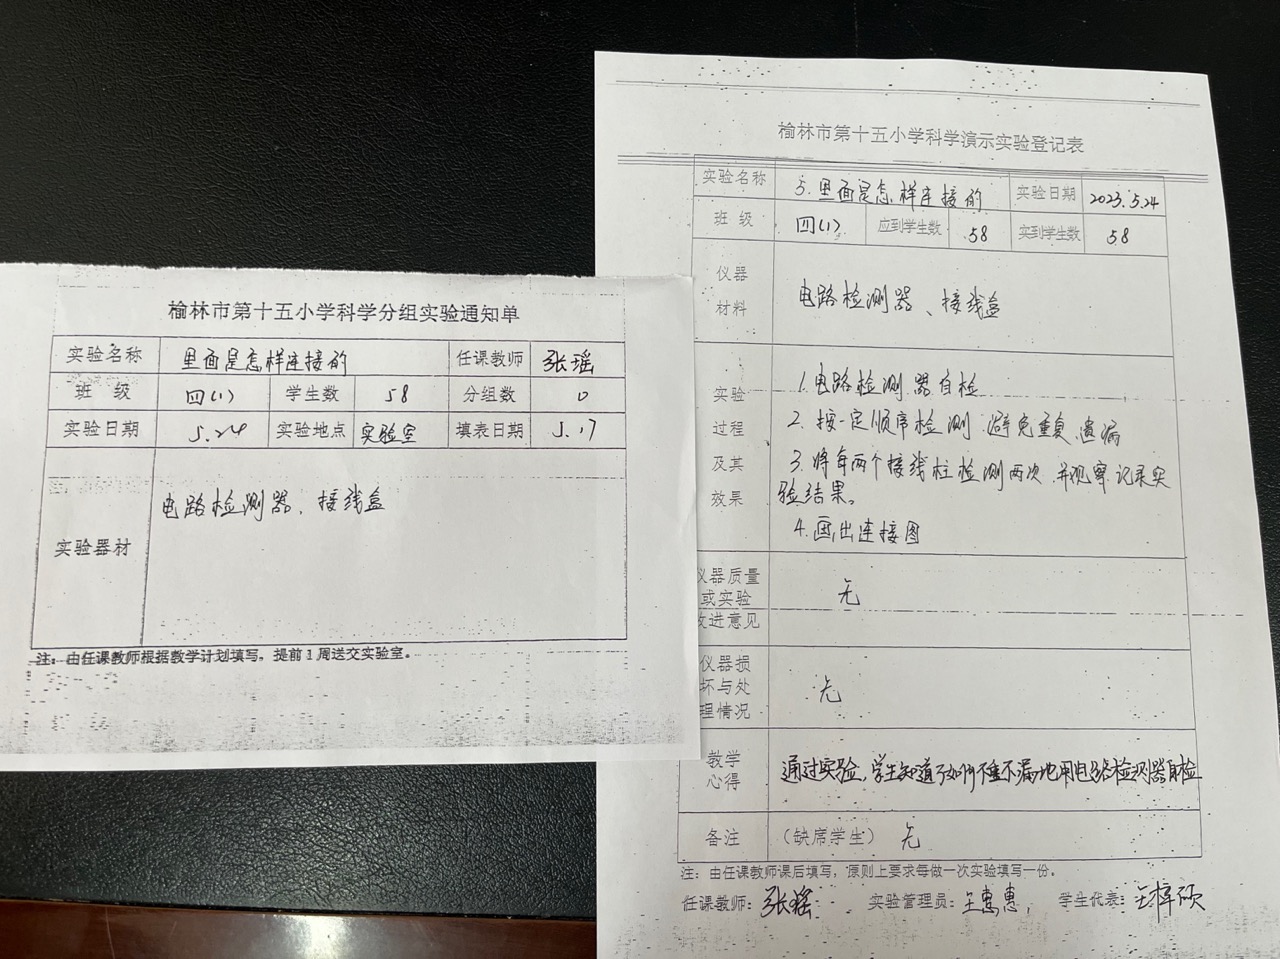 榆林市第十五小学科学分组实验通知单
实验名称 里面是怎样连接的 任课教师 张瑶
班 级 四(1) 学生数 58 分组数 0
实验日期 5.24 实验地点 实验室 填表日期 5.17
实验器材 电路检测器、接线盒
注：由任课教师根据教学计划填写，提前1周送交实验室。
榆林市第十五小学科学演示实验登记表
实验名称 5.里面是怎样连接的 实验日期 2023.5.24
班 级 四(1) 应到学生数 58 实到学生数 58
仪器
材料
电路检测器、接线盒
实验
过程
及其
效果
1.电路检测器自检
2.按一定顺序检测.避免重复.遗漏
3.将每两个接线柱检测两次.并观察.记录实
验结果。
4.画出连接图
仪器质量
或实验
改进意见
无
仪器损
坏与处
理情况
无
教学
心得
通过实验，学生知道了如何不重不漏地用电路检测器自检
备注 （缺席学生） 无
注：由任课教师课后填写，原则上要求每做一次实验填写一份。
任课教师：张瑶 实验管理员：王惠惠， 学生代表：王梓硕